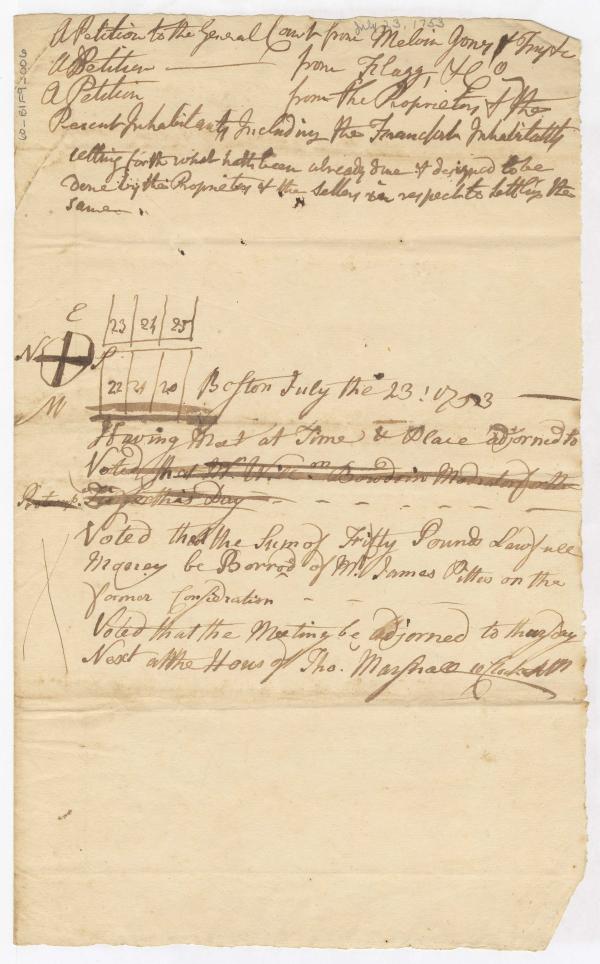 July 23, 1753
A Petition to the General Court from Melvin Jones &
A Petition — from Flagg, & Co
A Petition from the Proprietors & the
Present Inhabitants Including the Inhabitants
setting forth what hath been already done & designed to be
Done by the Proprietors & the Settlers in respect to settling the
same.
E
23 24 25
N S
22 21 20
W
Boston July the 23: 1753 —
Having Meet at Time & Place adjorned to
Voted that Mr. Wm. Bowdoin Moderator of the
this Day - - - - - -
Voted that the Sum of Fifty Pounds Lawfull
Money be Borrod of Mr James Pitts on the
former Consideration - -
Voted that the Meeting be Adjorned to thursday
Next at the Hous of Tho. Marshall